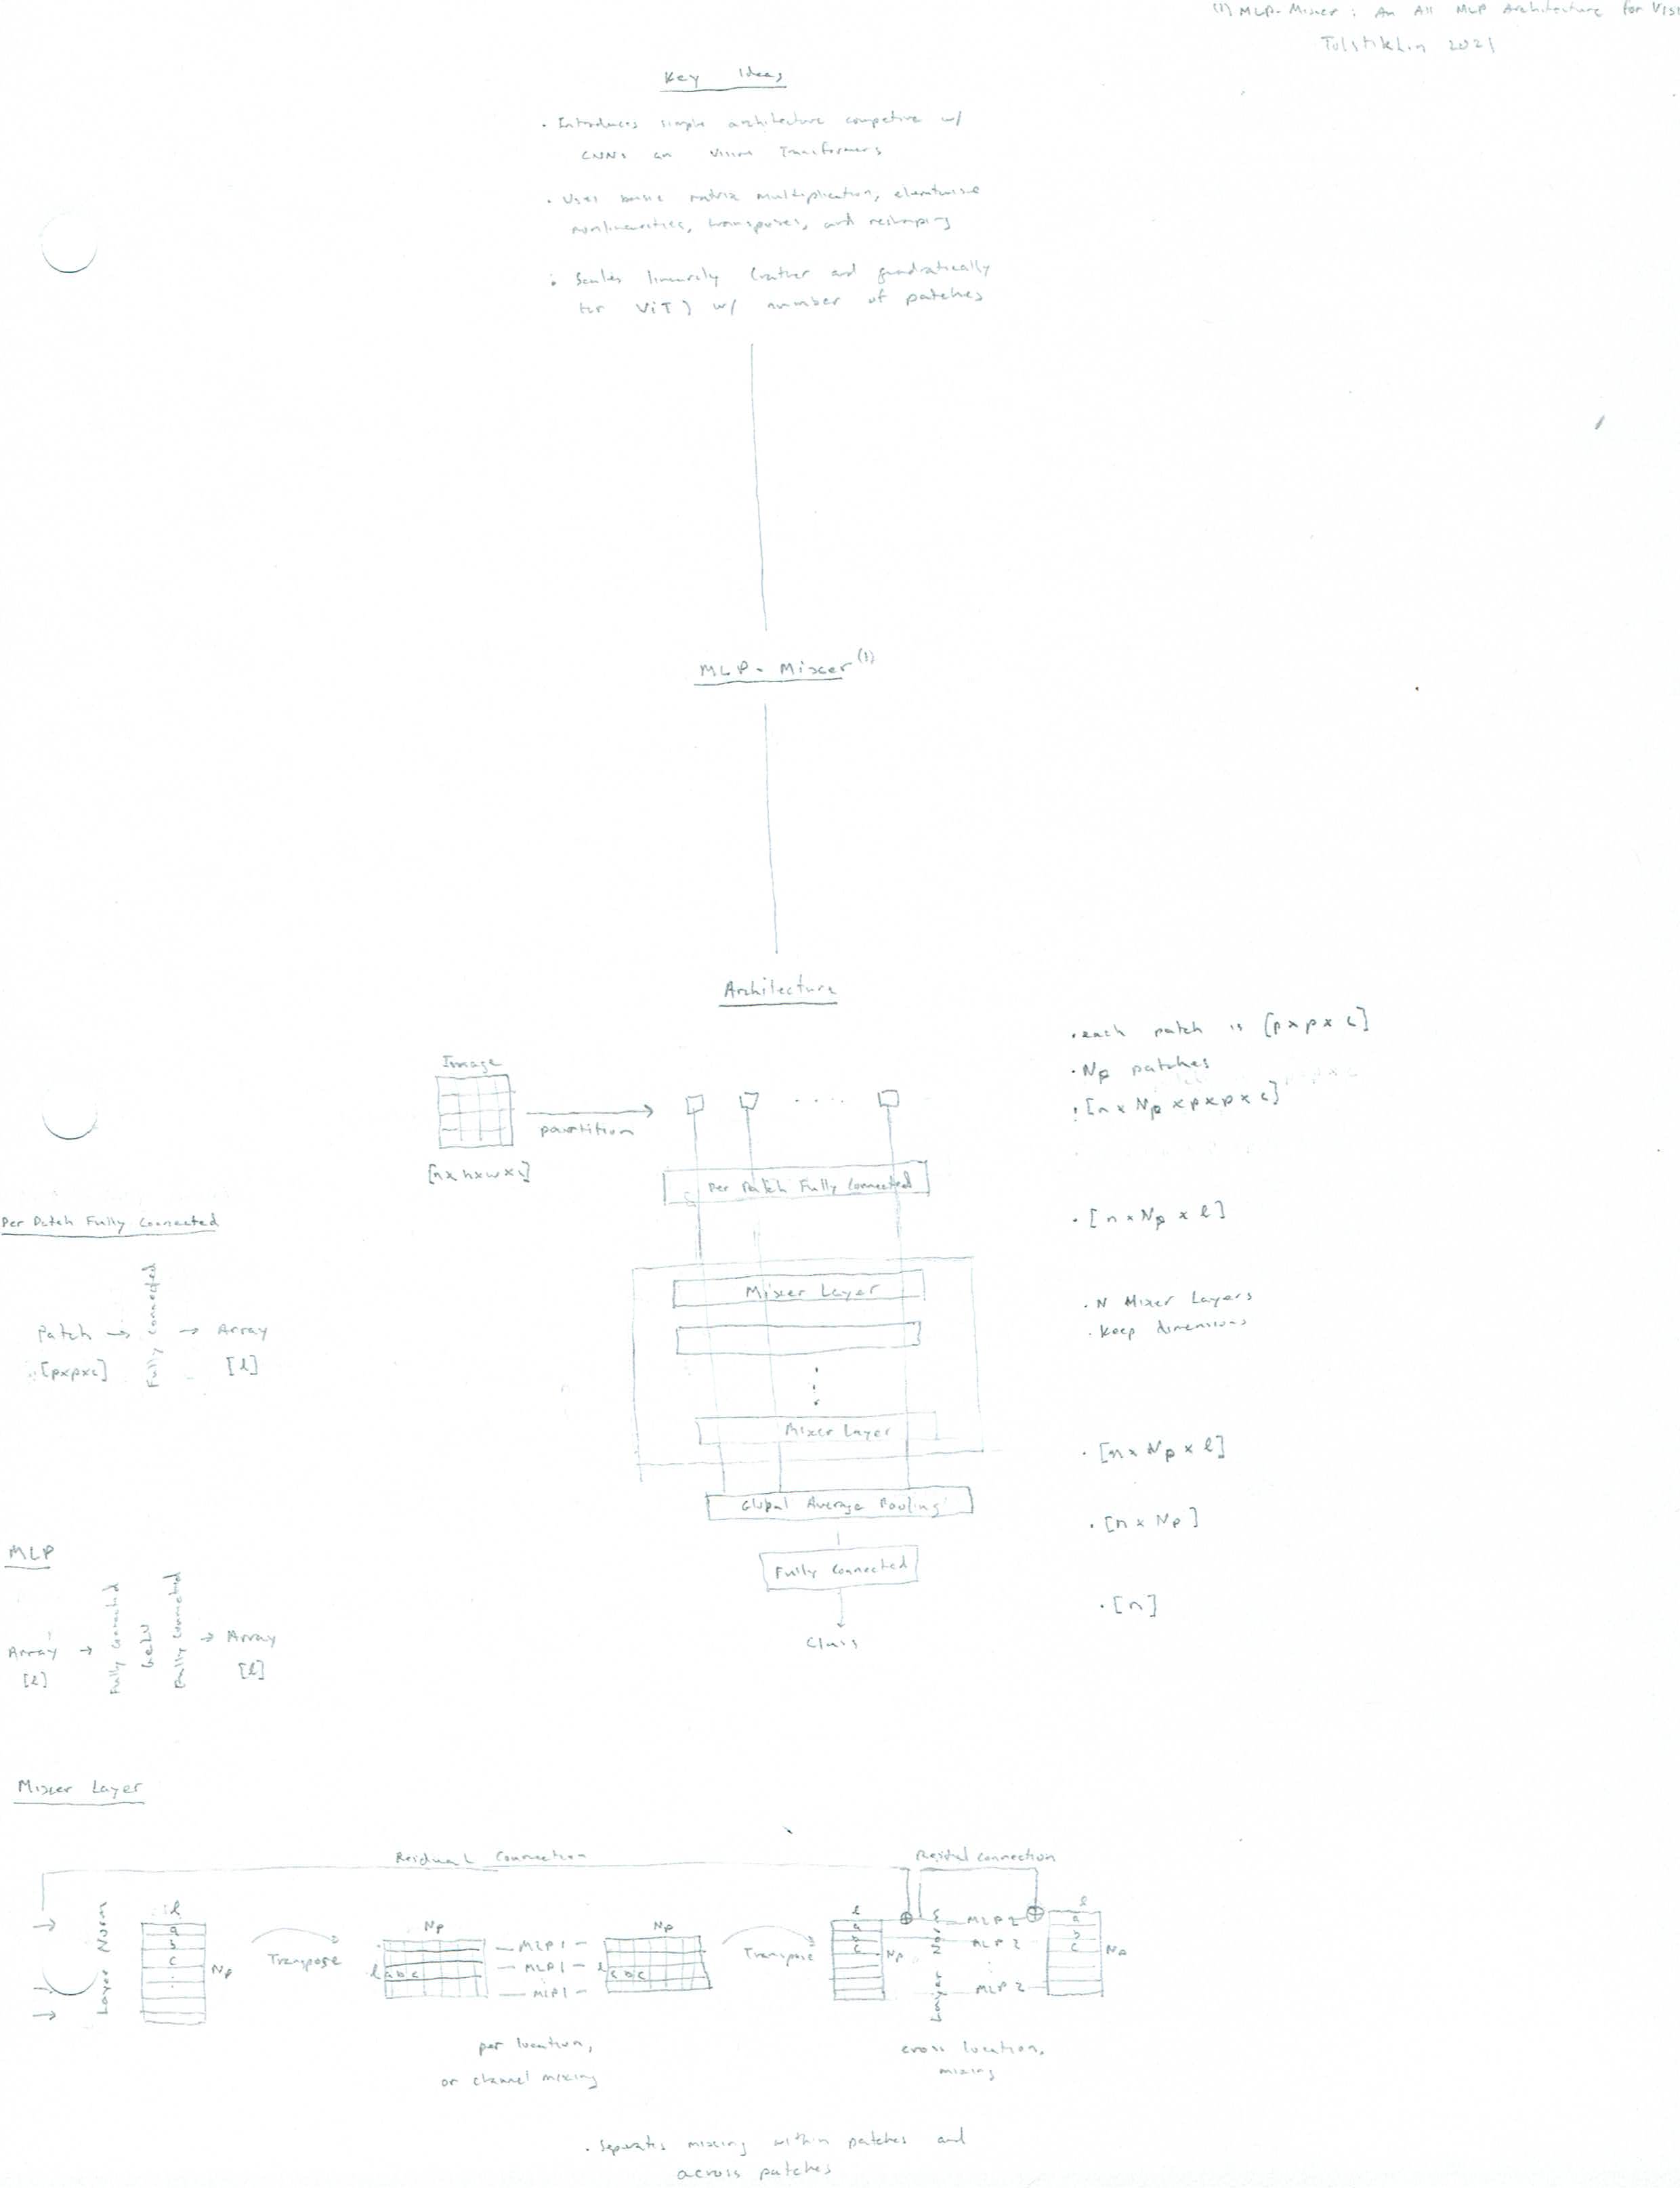 (1) MLP-Mixer : An All MLP Architecture for Vis
Tolstikhin 2021
Key Ideas
· Introduces simple architecture competive w/
CNNs an Vision Transformers
· Uses basic matrix multiplication, elementwise
nonlinearities, transposes, and reshaping
· Scales linearily (rather and quadratically
for ViT) w/ number of patches
MLP-Mixer (1)
Architecture
Image
partition
[n x h x w x c]
· each patch is [p x p x c]
· Np patches
· [n x Np x p x p x c]
Per Patch Fully Connected
· [n x Np x l]
Mixer Layer
· N Mixer Layers
· Keep dimensions
Mixer Layer
· [n x Np x l]
Global Average Pooling
· [n x Np]
Fully Connected
· [n]
Class
Per Patch Fully Connected
Patch → Fully Connected → Array
[pxpxc] [l]
MLP
Array → Fully Connected GeLU Fully Connected → Array
[l] [l]
Mixer Layer
Residual Connection
Residal connection
Layer Norm
l
a
b
c
Np
Transpose
Np
l a b c
MLP 1
MLP 1
MLP 1
Np
l
c b c
Transpose
l
a
b
c
Np
Layer Norm
MLP 2
MLP 2
MLP 2
l
a
b
c
Np
per location,
or channel mixing
cross location,
mixing
· Separates mixing within patches and
across patches